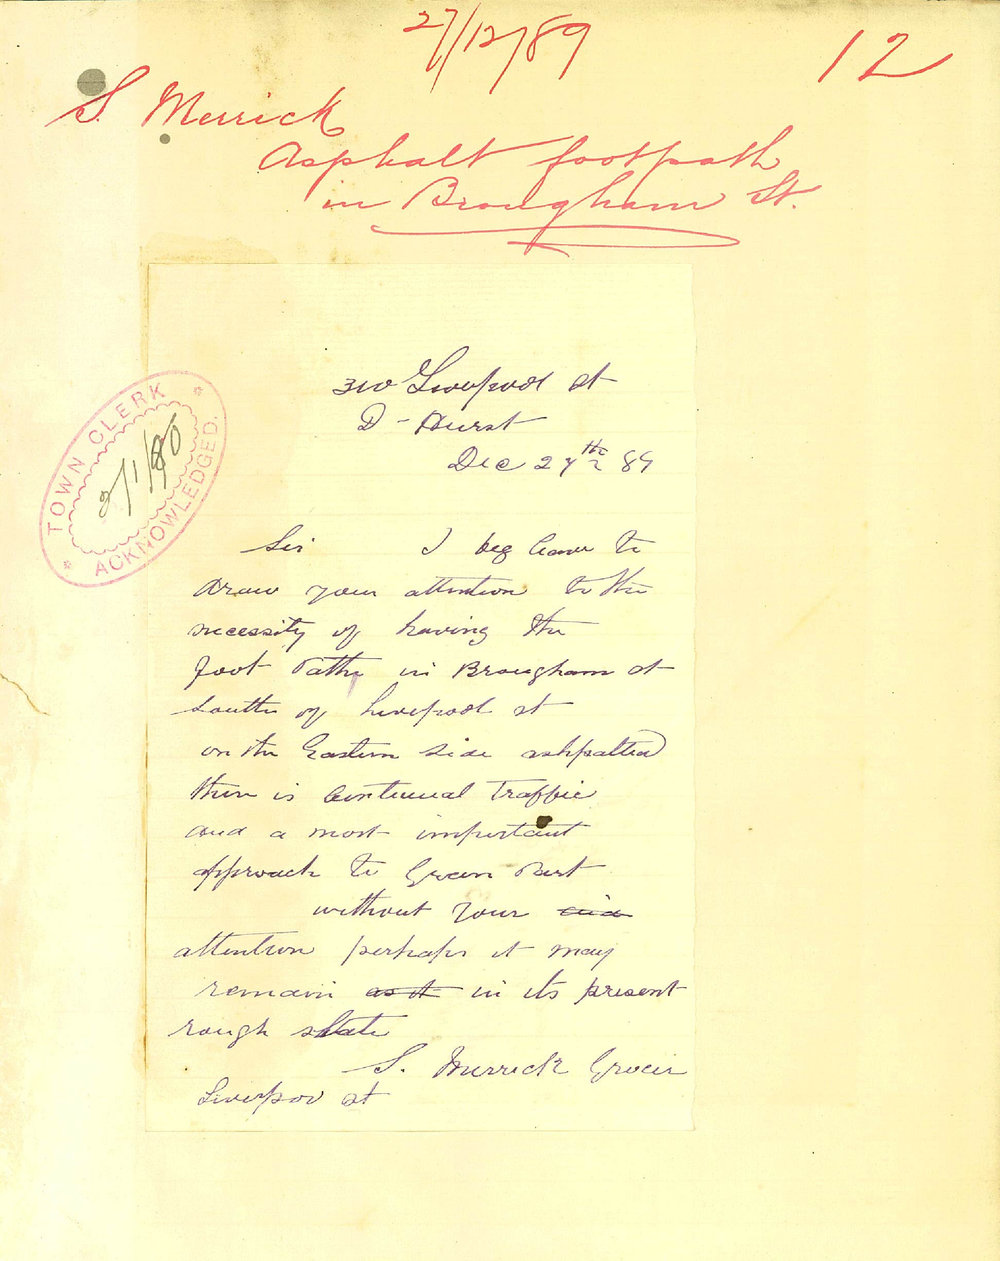 27/12/89
12
S. Merrick
Asphalt footpath
in Brougham St.
TOWN CLERK
2/1/90
ACKNOWLEDGED.
310 Liverpool st
D-Hurst
Dec 27th 89
Sir I beg leave to
draw your attention to the
necessity of having the
foot Paths in Brougham st
South of Liverpool st
on the Eastern side ashpalted
there is continual traffic
and a most important
approach to Green Park
without your
attention perhaps it may
remain as it in its present
rough state
S. Merrick Grocer
Liverpool st